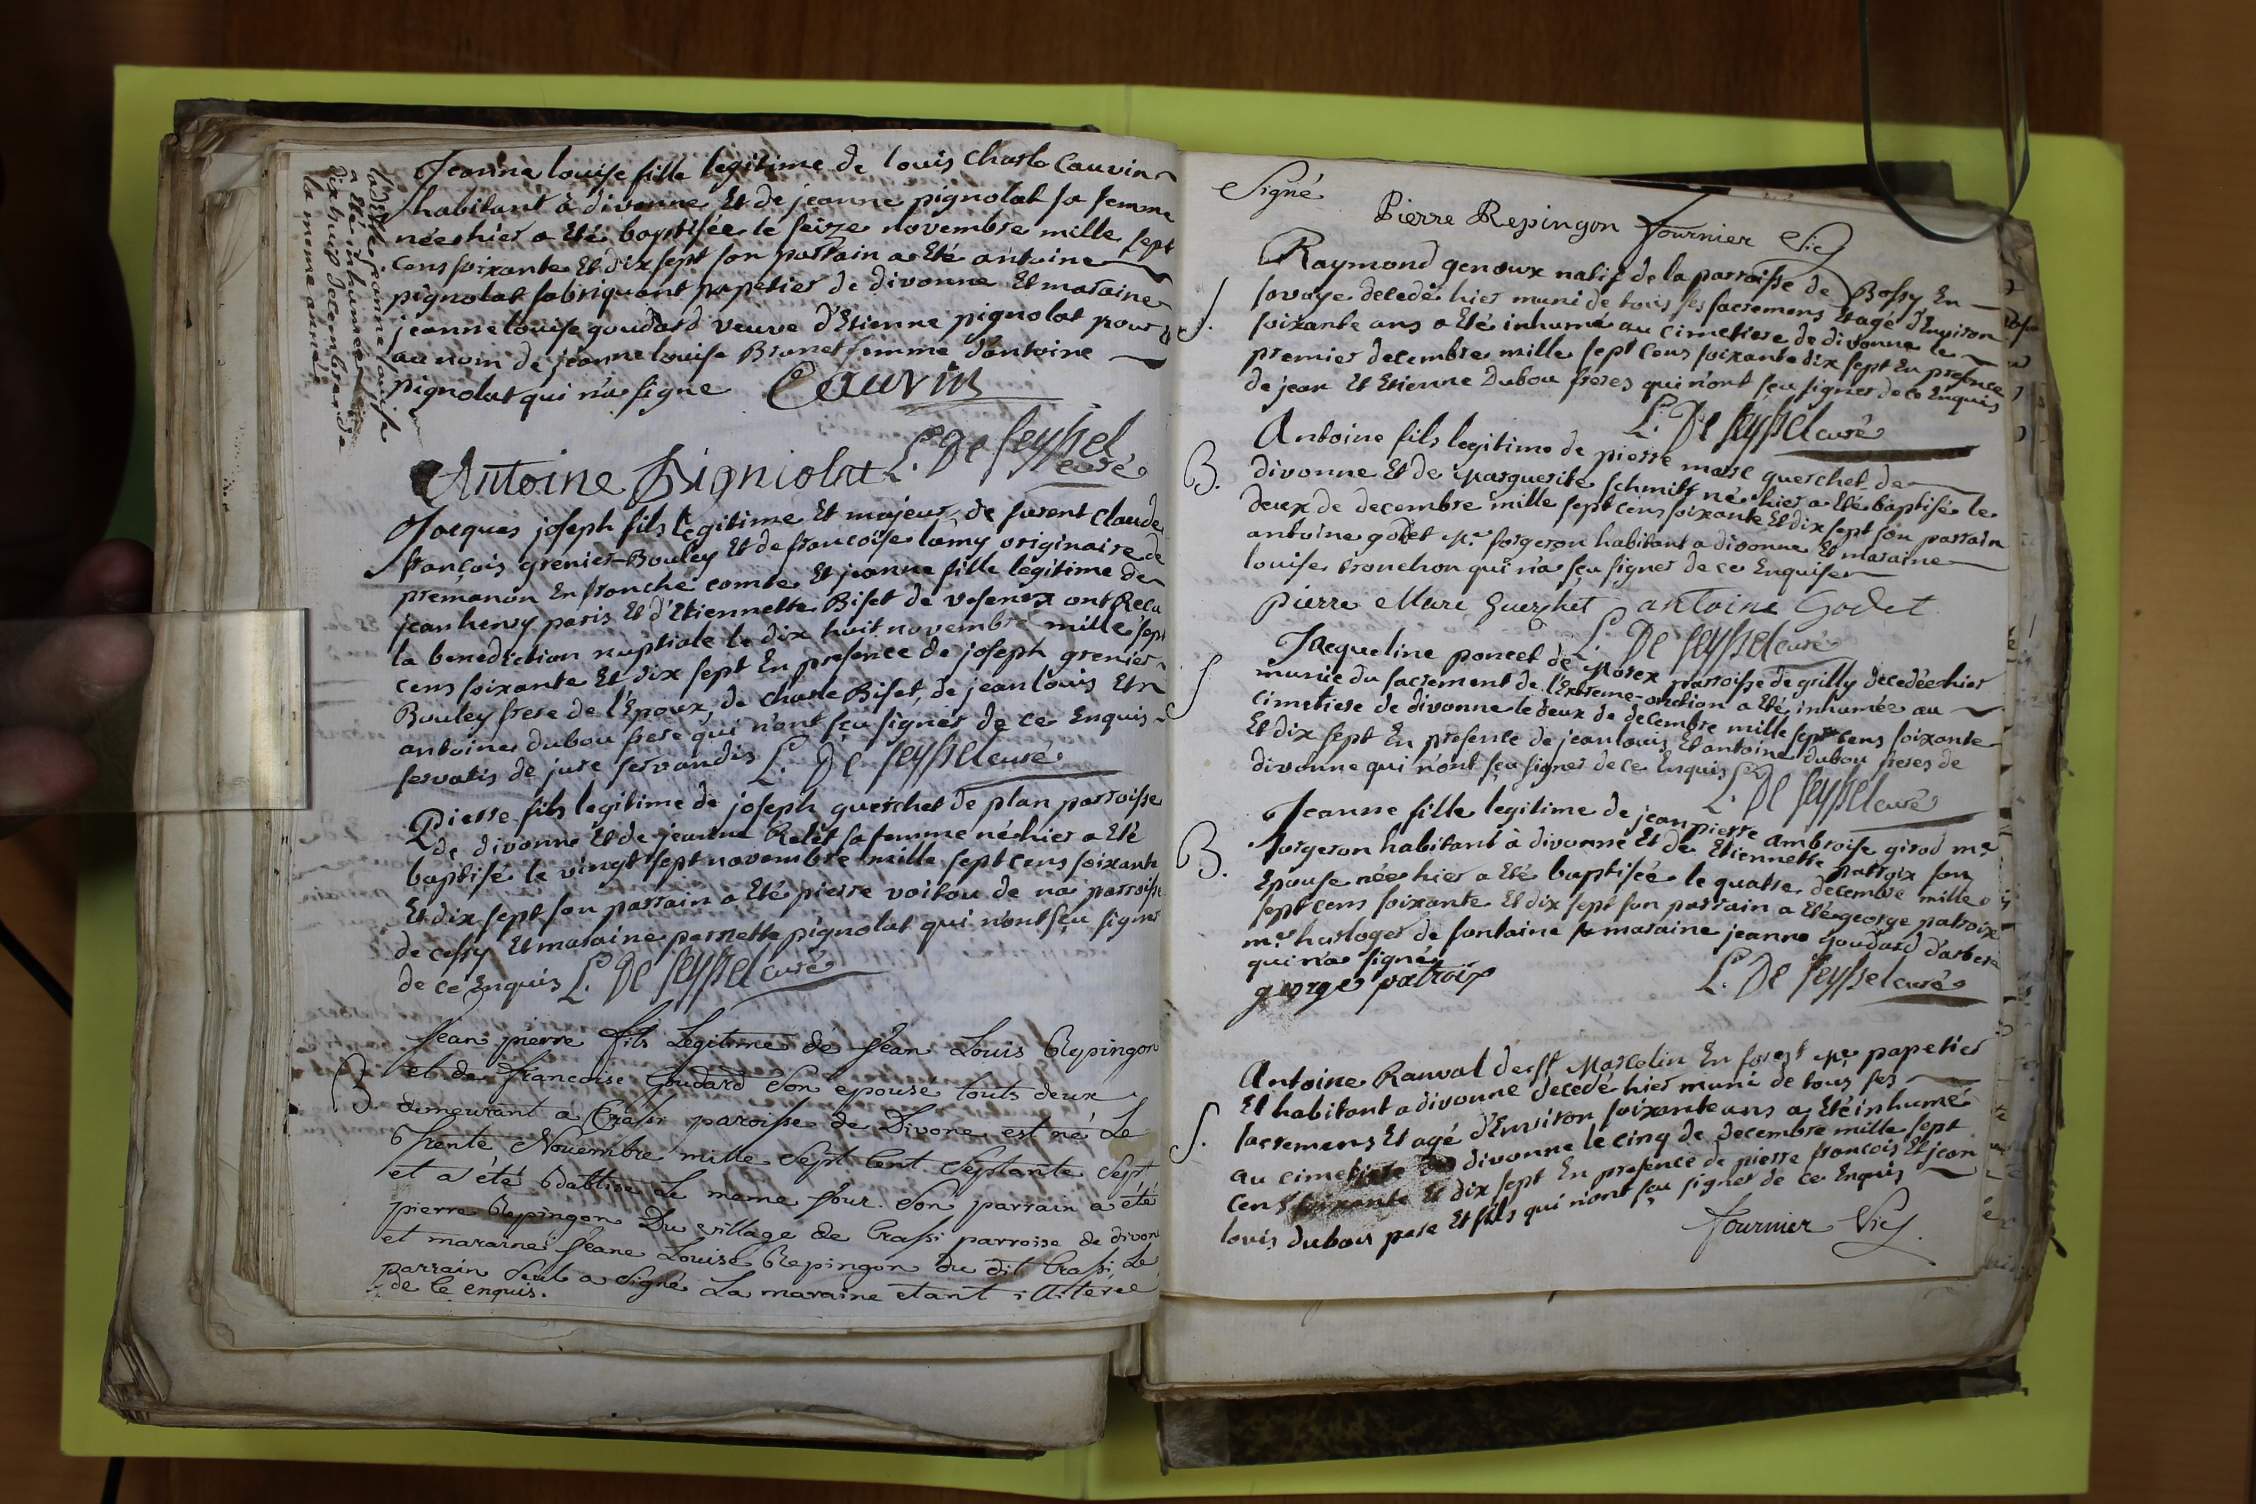 Jeanne louise fille legitime de louis Charle Cauvin
habitant à divonne Et de jeanne pignolat sa femme
née hier a Eté baptisée le seize novembre mille sept
cens soixante Et dix sept son parrain a Eté antoine
pignolat fabriquant papetier de divonne Et maraine
jeanne louise goudard veuve d'Etienne pignolat pour &
au nom de jeanne louise Brunet femme d'antoine
pignolat qui n'a signe Cauvin
L. De seyssel
curé
Antoine Pigniolat
ladite jeanne louise
a Eté inhumée le
dix huit decembre de
la meme année
Jacques joseph fils legitime Et majeur de furent Claude
françois grenier-Bouley Et de francoise lamy originaire de
premanon En franche comte Et jeanne fille legitime de
jean henry paris Et d'Etiennette Biset de vesenex ont Recu
la benediction nuptiale le dix huit novembre mille sept
cens soixante Et dix sept En presence de joseph grenier
Bouley frere de l'Epoux, de charle Biset, de jean louis Et
antoine dubou frere qui n'ont sçu signer de ce Enquis
servatis de jure servandis L. De seyssel curé
Pierre fils legitime de joseph querchet de plan parroisse
de divonne Et de jeanne Relet sa femme né hier a Eté
baptisé le vingt sept novembre mille sept cens soixante
Et dix sept son parrain a Eté pierre voitou de na parroisse
de cessy Et maraine pernette pignolat qui n'ont sçu signer
de ce Enquis L. De seyssel curé
B.
Jean pierre fils Legitime de Jean Louis Repingon
et de francoise Goudard son epouse touts deux
demeurant a Crassi paroisse de Divone est né Le
trente Novembre mille Sept Cent Septante Sept
et a été Babtise Le meme Jour. Son parrain a été
pierre Repingon Du village de Crassi parroise de divone
et maraine Jeane Louise Repingon du dit Crassi, Le
parrain Seul a Signé La maraine etant illiterée
de Ce enquis.
Signé
Pierre Repingon fournier Vic
S.
Raymond genoux natif de la parroisse de Bossy En
savoye decedé hier muni de tous ses sacremens Et agé d'Environ
soixante ans a Eté inhumé au cimetiere de divonne le
premier decembre mille sept cens soixante dix sept En presence
de jean Et Etienne Dubou freres qui n'ont sçu signer de ce Enquis
L. De seyssel curé
B.
Antoine fils legitime de pierre marc querchet de
divonne Et de Marguerite schmitt né hier a Eté baptisé le
deux de decembre mille sept cens soixante Et dix sept son parrain
antoine godet Me. forgeron habitant a divonne Et maraine
louise tronchon qui n'a sçu signer de ce Enquise
Pierre Marc Guerchet antoine Godet
L. De seyssel curé
S
Jacqueline poncet de Morex parroisse de grilly decedée hier
munie du sacrement de l'Extreme-onction a Eté inhumée au
cimetiere de divonne le deux de decembre mille sept cens soixante
Et dix sept En presence de jean louis Et antoine dubou freres de
divonne qui n'ont sçu signer de ce Enquis
L. De seyssel curé
B.
Jeanne fille legitime de jean pierre ambroise girod me
forgeron habitant à divonne Et de Etiennette patroix son
Epouse née hier a Eté baptisée le quatre decembre mille
sept cens soixante Et dix sept son parrain a Eté george patroix
me horloger de fontaine maraine jeanne goudard d'arbere
qui n'a signé
george patroix
L. De seyssel curé
S.
Antoine Ranval de st Marcelin En forest Me papetier
Et habitant a divonne decedé hier muni de tous ses
sacremens Et agé d'Environ soixante ans a Eté inhumé
au cimetiere de divonne le cinq de decembre mille sept
cens soixante Et dix sept En presence de pierre francois Et jean
louis dubou pere Et fils qui n'ont sçu signer de ce Enquis
fournier Vic